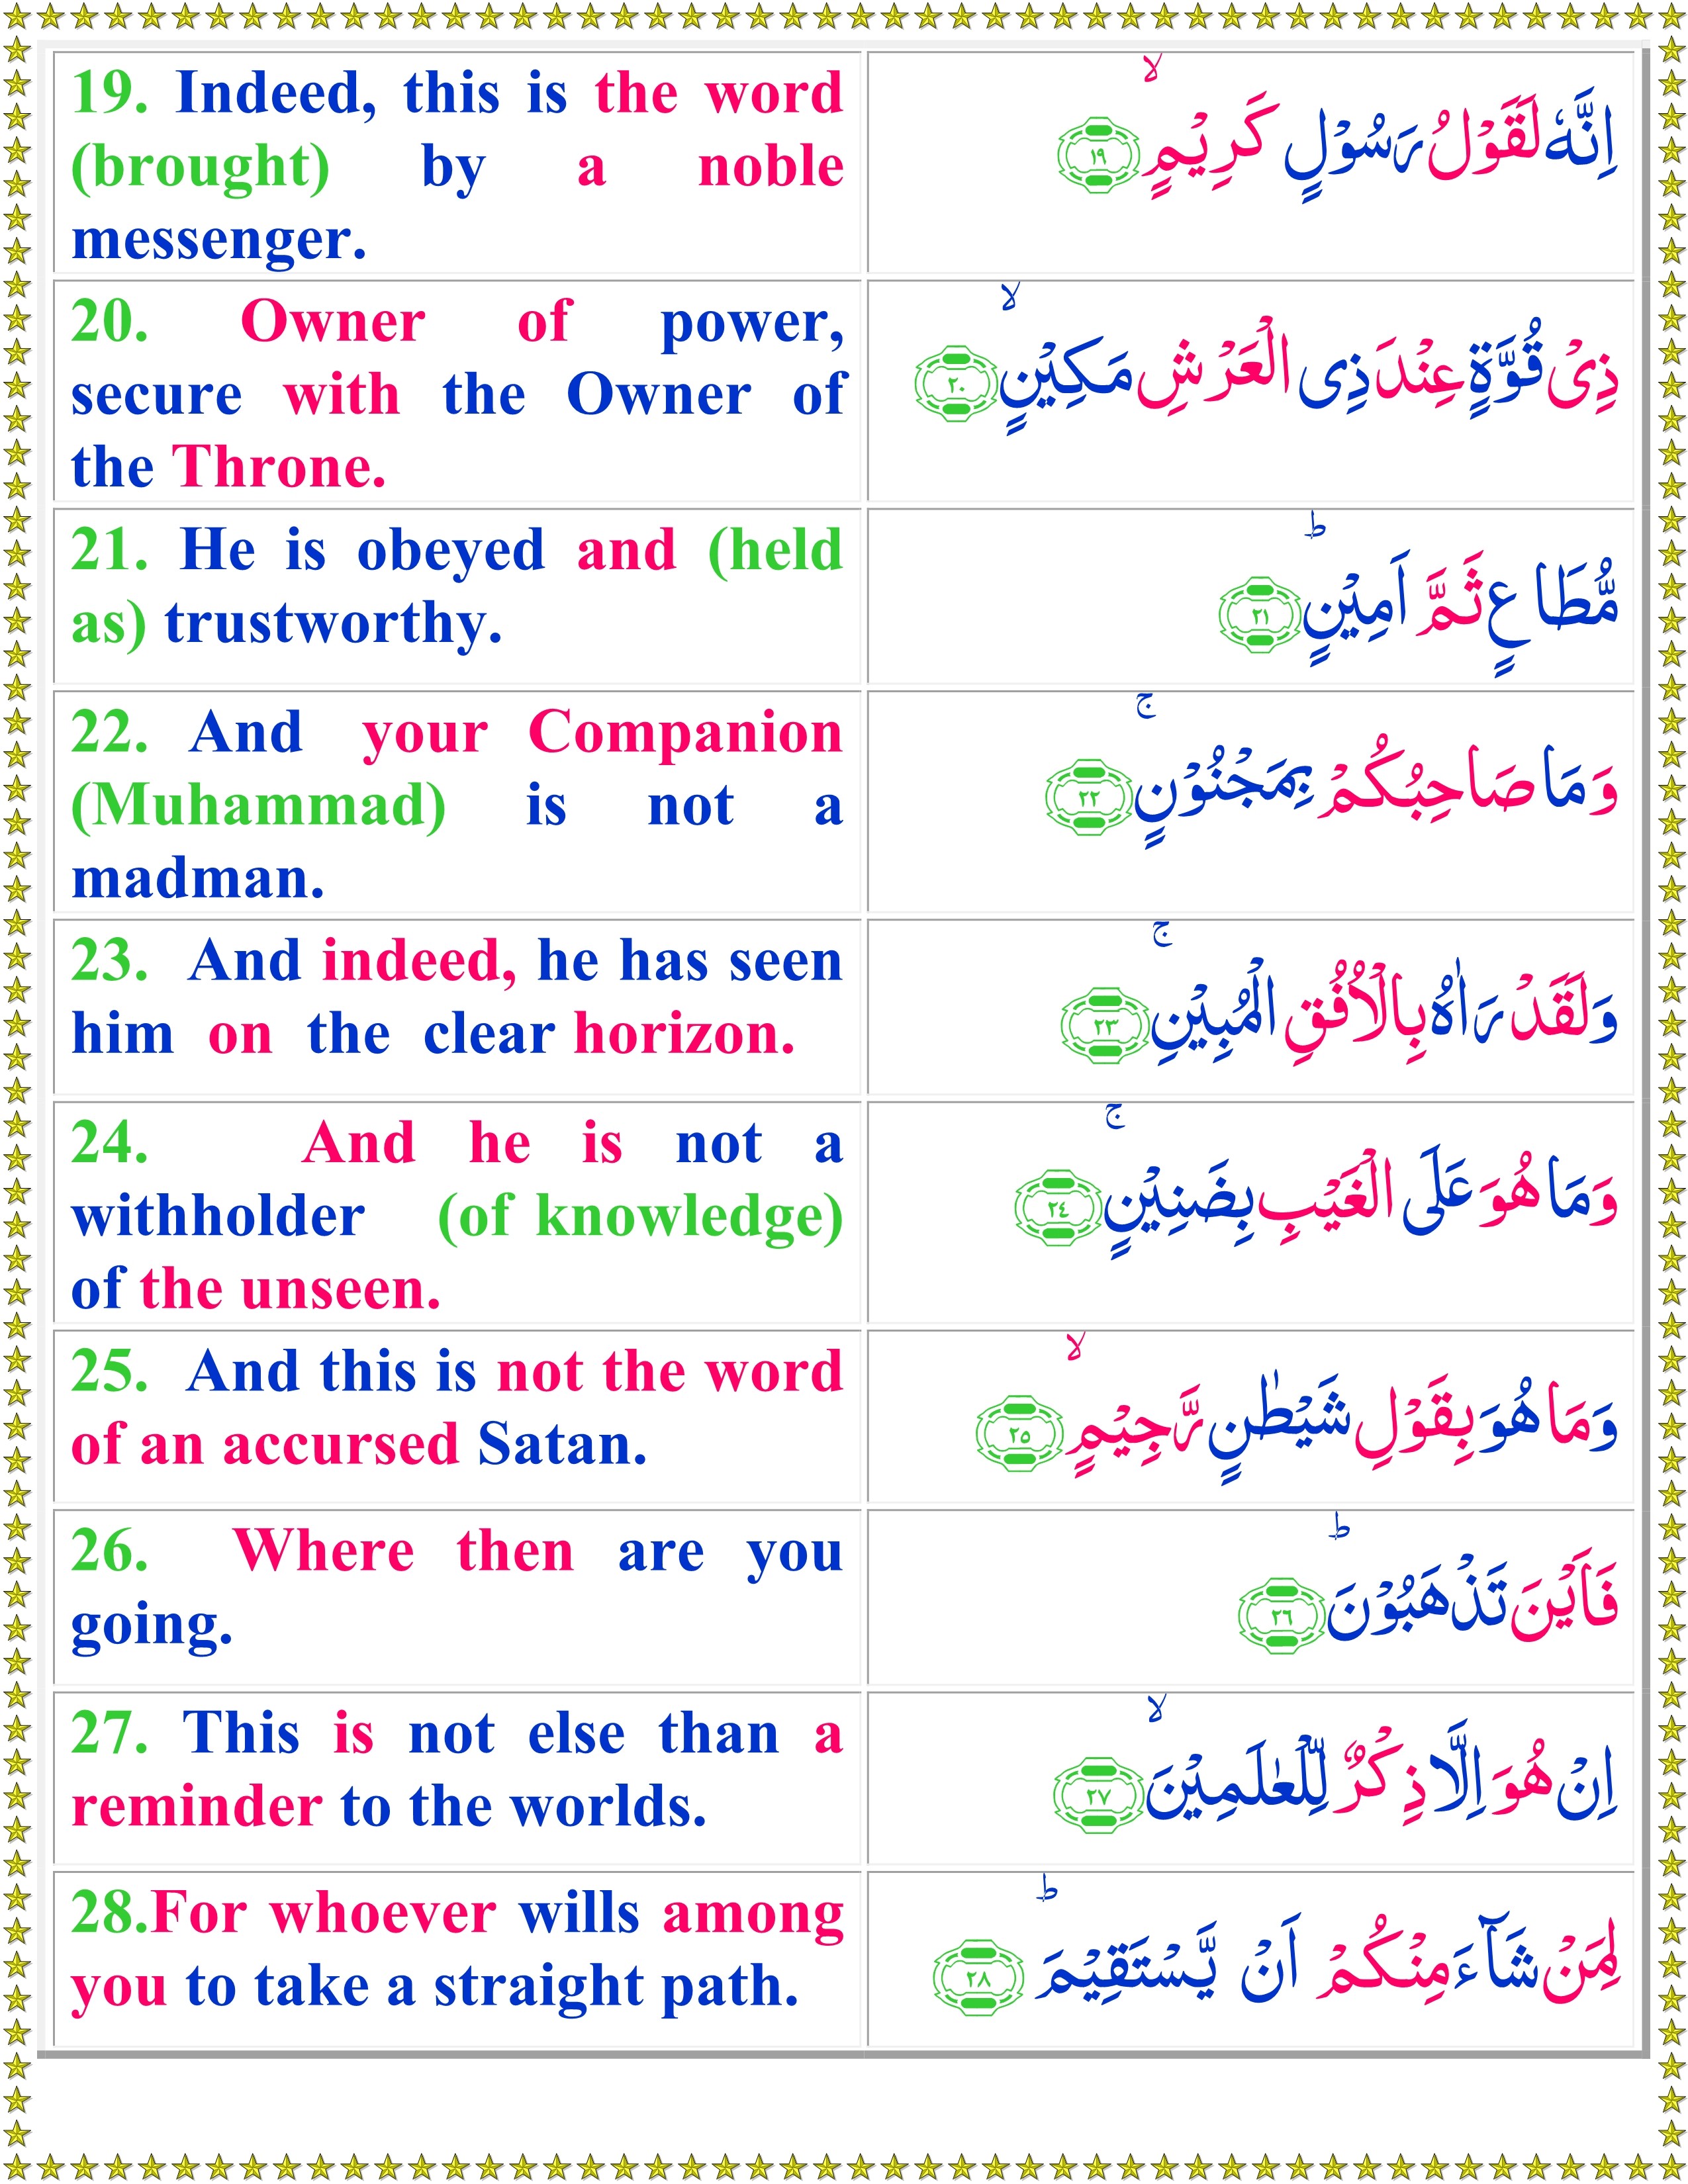 19. Indeed, this is the word
(brought) by a noble
messenger.
اِنَّهٗ لَقَوۡلُ رَسُوۡلٍ كَرِيۡمٍۙ ‏﴿۱۹﴾
20. Owner of power,
secure with the Owner of
the Throne.
ذِىۡ قُوَّةٍ عِنۡدَ ذِى الۡعَرۡشِ مَكِيۡنٍۙ ‏﴿۲۰﴾
21. He is obeyed and (held
as) trustworthy.
مُّطَاعٍ ثَمَّ اَمِيۡنٍؕ ‏﴿۲۱﴾
22. And your Companion
(Muhammad) is not a
madman.
وَ مَا صَاحِبُكُمۡ بِمَجۡنُوۡنٍۚ ‏﴿۲۲﴾
23. And indeed, he has seen
him on the clear horizon.
وَلَقَدۡ رَاٰهُ بِالۡاُفُقِ الۡمُبِيۡنِۚ ‏﴿۲۳﴾
24. And he is not a
withholder (of knowledge)
of the unseen.
وَمَا هُوَ عَلَى الۡغَيۡبِ بِضَنِيۡنٍۚ ‏﴿۲٤﴾
25. And this is not the word
of an accursed Satan.
وَمَا هُوَ بِقَوۡلِ شَيۡطٰنٍ رَّجِيۡمٍۙ ‏﴿۲۵﴾
26. Where then are you
going.
فَاَيۡنَ تَذۡهَبُوۡنَؕ ‏﴿۲٦﴾
27. This is not else than a
reminder to the worlds.
اِنۡ هُوَ اِلَّا ذِكۡرٌ لِّلۡعٰلَمِيۡنَۙ ‏﴿۲۷﴾
28.For whoever wills among
you to take a straight path.
لِمَنۡ شَآءَ مِنۡكُمۡ اَنۡ يَّسۡتَقِيۡمَؕ ‏﴿۲۸﴾